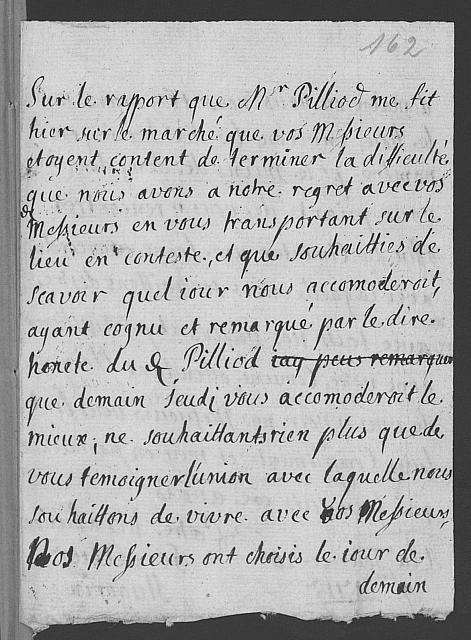 162
Sur le rapport que Mr Pilliod me fit
hier sur le marché que vos Messieurs
etoyent content de terminer la difficulté
que nous avons a notre regret avec vos
Messieurs en vous transportant sur le
lieu en conteste, et que souhaitties de
scavoir quel iour nous accomoderoit,
ayant cognu et remarqué par le dire
honete du Pilliod iay peus remarquer
que demain Jeudi vous accomoderoit le
mieux, ne souhaittants rien plus que de
vous temoigner l'union avec laquelle nous
souhaittons de vivre avec Vos Messieurs,
Nos Messieurs ont choisis le iour de
demain